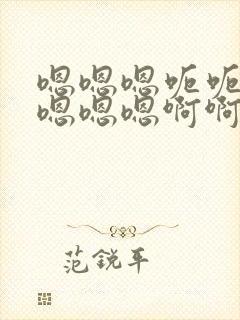 嗯嗯嗯呃呃
嗯嗯嗯啊啊
范锐平